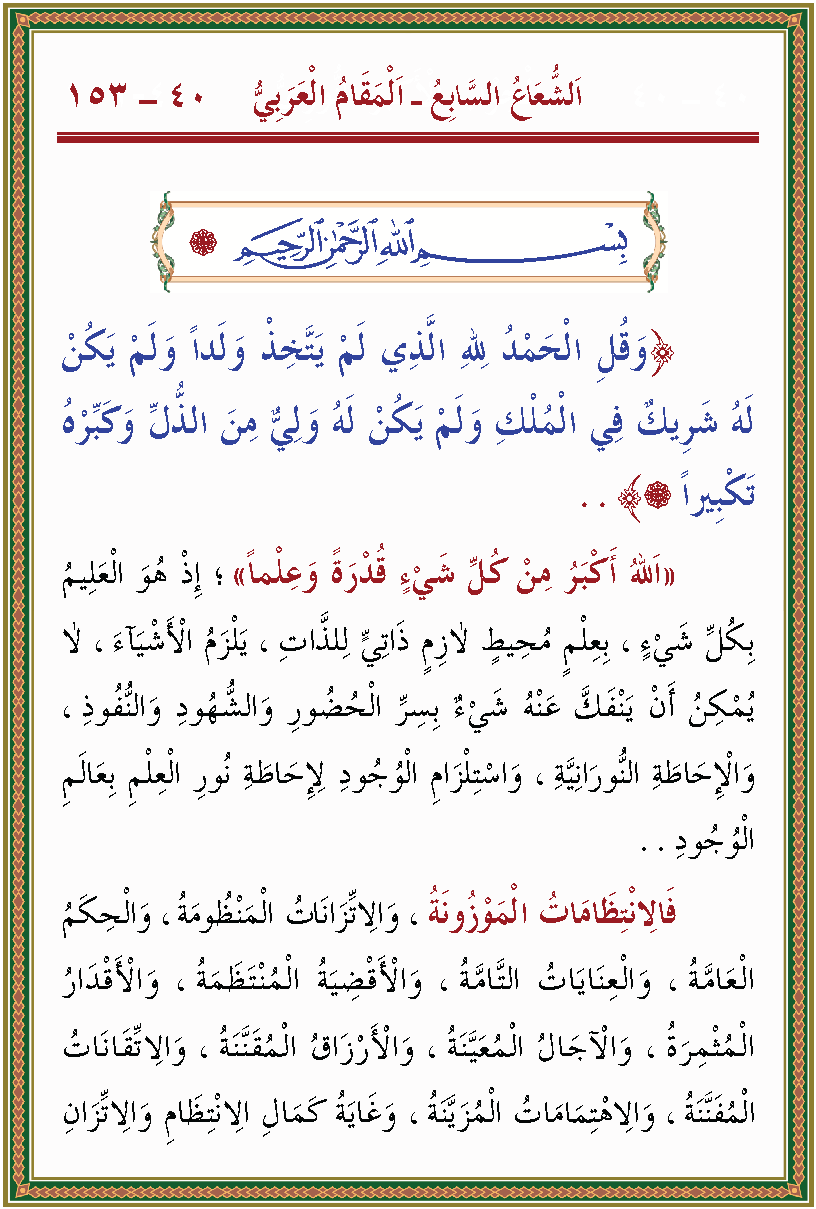 اَلشُّعَاعُ السَّابِعُ ـ اَلْمَقَامُ الْعَرَبِيُّ ٤٠ – ١٥٣
بِسْــــمِ اللهِ الرَّحْمٰنِ الرَّحِيمِ
﴿وَقُلِ الْحَمْدُ لِلهِ الَّذِي لَمْ يَتَّخِذْ وَلَداً وَلَمْ يَكُنْ
لَهُ شَرِيكٌ فِي الْمُلْكِ وَلَمْ يَكُنْ لَهُ وَلِيٌّ مِنَ الذُّلِّ وَكَبِّرْهُ
تَكْبِيراً ﴾ . .
«اَللهُ أَكْبَرُ مِنْ كُلِّ شَيْءٍ قُدْرَةً وَعِلْماً» ؛ إِذْ هُوَ الْعَلِيمُ
بِكُلِّ شَيْءٍ ، بِعِلْمٍ مُحِيطٍ لاَزِمٍ ذَاتِيٍّ لِلذَّاتِ ، يَلْزَمُ الْأَشْيَآءَ ، لاَ
يُمْكِنُ أَنْ يَنْفَكَّ عَنْهُ شَيْءٌ بِسِرِّ الْحُضُورِ وَالشُّهُودِ وَالنُّفُوذِ ،
وَالْإِحَاطَةِ النُّورَانِيَّةِ ، وَاسْتِلْزَامِ الْوُجُودِ لِإِحَاطَةِ نُورِ الْعِلْمِ بِعَالَمِ
الْوُجُودِ . .
فَالِانْتِظَامَاتُ الْمَوْزُونَةُ ، وَالِاتِّزَانَاتُ الْمَنْظُومَةُ ، وَالْحِكَمُ
الْعَامَّةُ ، وَالْعِنَايَاتُ التَّامَّةُ ، وَالْأَقْضِيَةُ الْمُنْتَظَمَةُ ، وَالْأَقْدَارُ
الْمُثْمِرَةُ ، وَالْآجَالُ الْمُعَيَّنَةُ ، وَالْأَرْزَاقُ الْمُقَنَّنَةُ ، وَالِاتِّقَانَاتُ
الْمُفَنَّنَةُ ، وَالِاهْتِمَامَاتُ الْمُزَيَّنَةُ ، وَغَايَةُ كَمَالِ الِانْتِظَامِ وَالِاتِّزَانِ